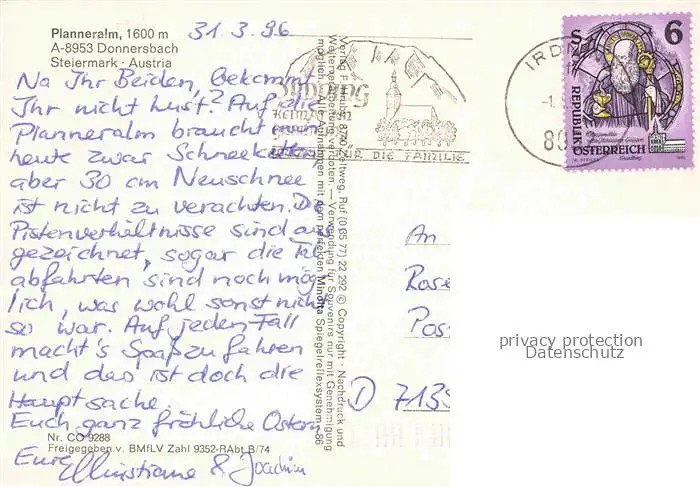 Planneralm, 1600 m
A-8953 Donnersbach
Steiermark · Austria
31 3. 96
Na Ihr Beiden, bekommt
Ihr nicht Lust? Auf die
Planneralm braucht man
heute zwar Schneeketten,
aber 30 cm Neuschnee
ist nicht zu verachten. Die
Pistenverhältnisse sind aus
gezeichnet, sogar die Tal
abfahrten sind noch mög
lich, was wohl sonst nicht
so war. Auf jeden Fall
macht's Spaß zu fahren
und das ist doch die
Hauptsache.
Euch ganz fröhliche Ostern
Eure Christiane & Joachim
Nr. CO 9288
Freigegeben v. BMfLV Zahl 9352-RAbt B/74
Verlag F. 8740 Zeltweg, Ruf (0 35 77) 22 292 © Copyright · Nachdruck und
Weiterverarbeitung verboten. — Verwendung für Souvenirs nur mit Genehmigung
möglich. Alle Aufnahmen mit dem perfekten Minolta Spiegelreflexsystem. 86
FÜR DIE FAMILIE
IRDN
S 6
REPUBLIK
ÖSTERREICH
An
Rose
Pos
D 7139
privacy protection
Datenschutz